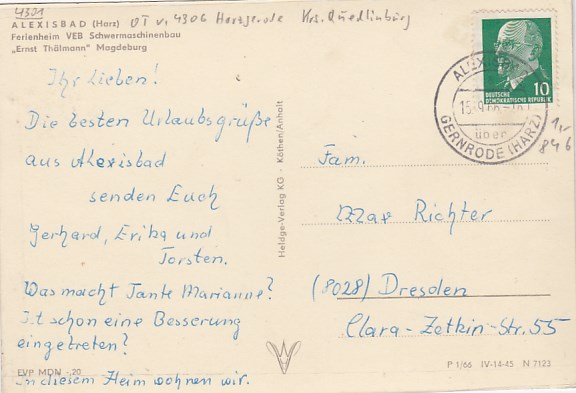 4301
ALEXISBAD (Harz) OT v. 4306 Harzgerode Krs. Quedlinburg
Ferienheim VEB Schwermaschinenbau
„Ernst Thälmann" Magdeburg
Ihr Lieben!
Die besten Urlaubsgrüße
aus Alexisbad
senden Euch
Gerhard, Erika und
Torsten.
Was macht Tante Marianne?
Ist schon eine Besserung
eingetreten?
In diesem Heim wohnen wir.
EVP MDN -,20
Heldge-Verlag KG · Köthen/Anhalt
DEUTSCHE
DEMOKRATISCHE REPUBLIK
10
ALEXISBAD
über
GERNRODE (HARZ)
846
Fam.
Max Richter
(8028) Dresden
Clara-Zetkin-Str. 55
P 1/66 IV-14-45 N 7123